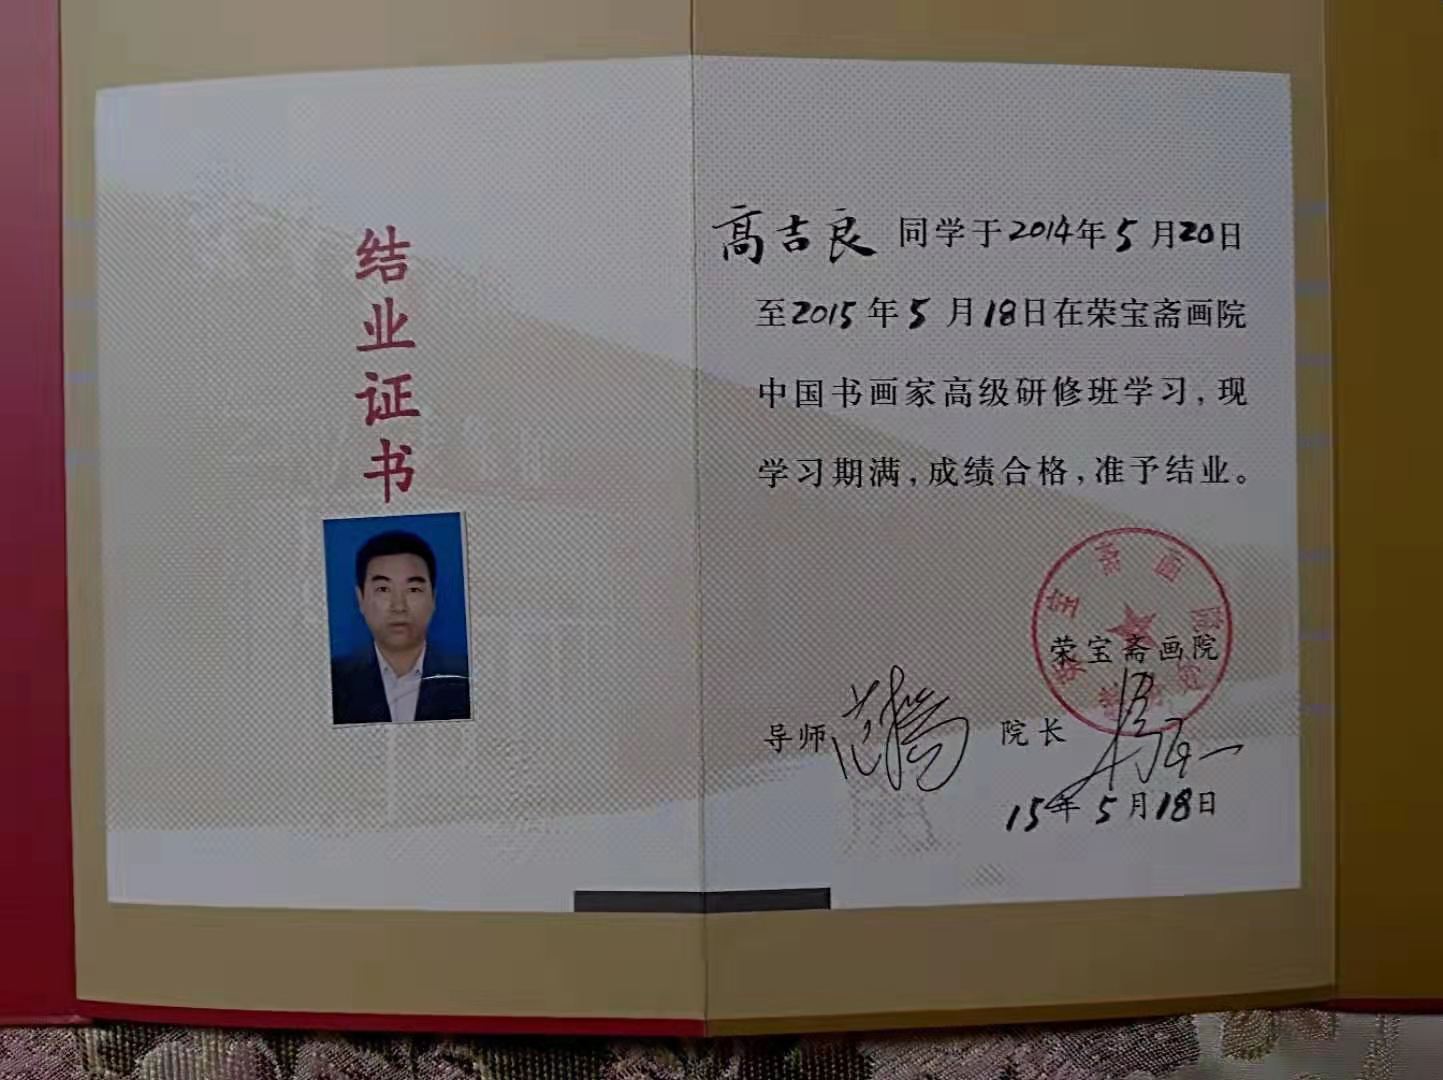 结业证书
高吉良 同学于2014年5月20日
至2015年5月18日在荣宝斋画院
中国书画家高级研修班学习,现
学习期满,成绩合格,准予结业。
荣宝斋画院
导师 院长
15年5月18日